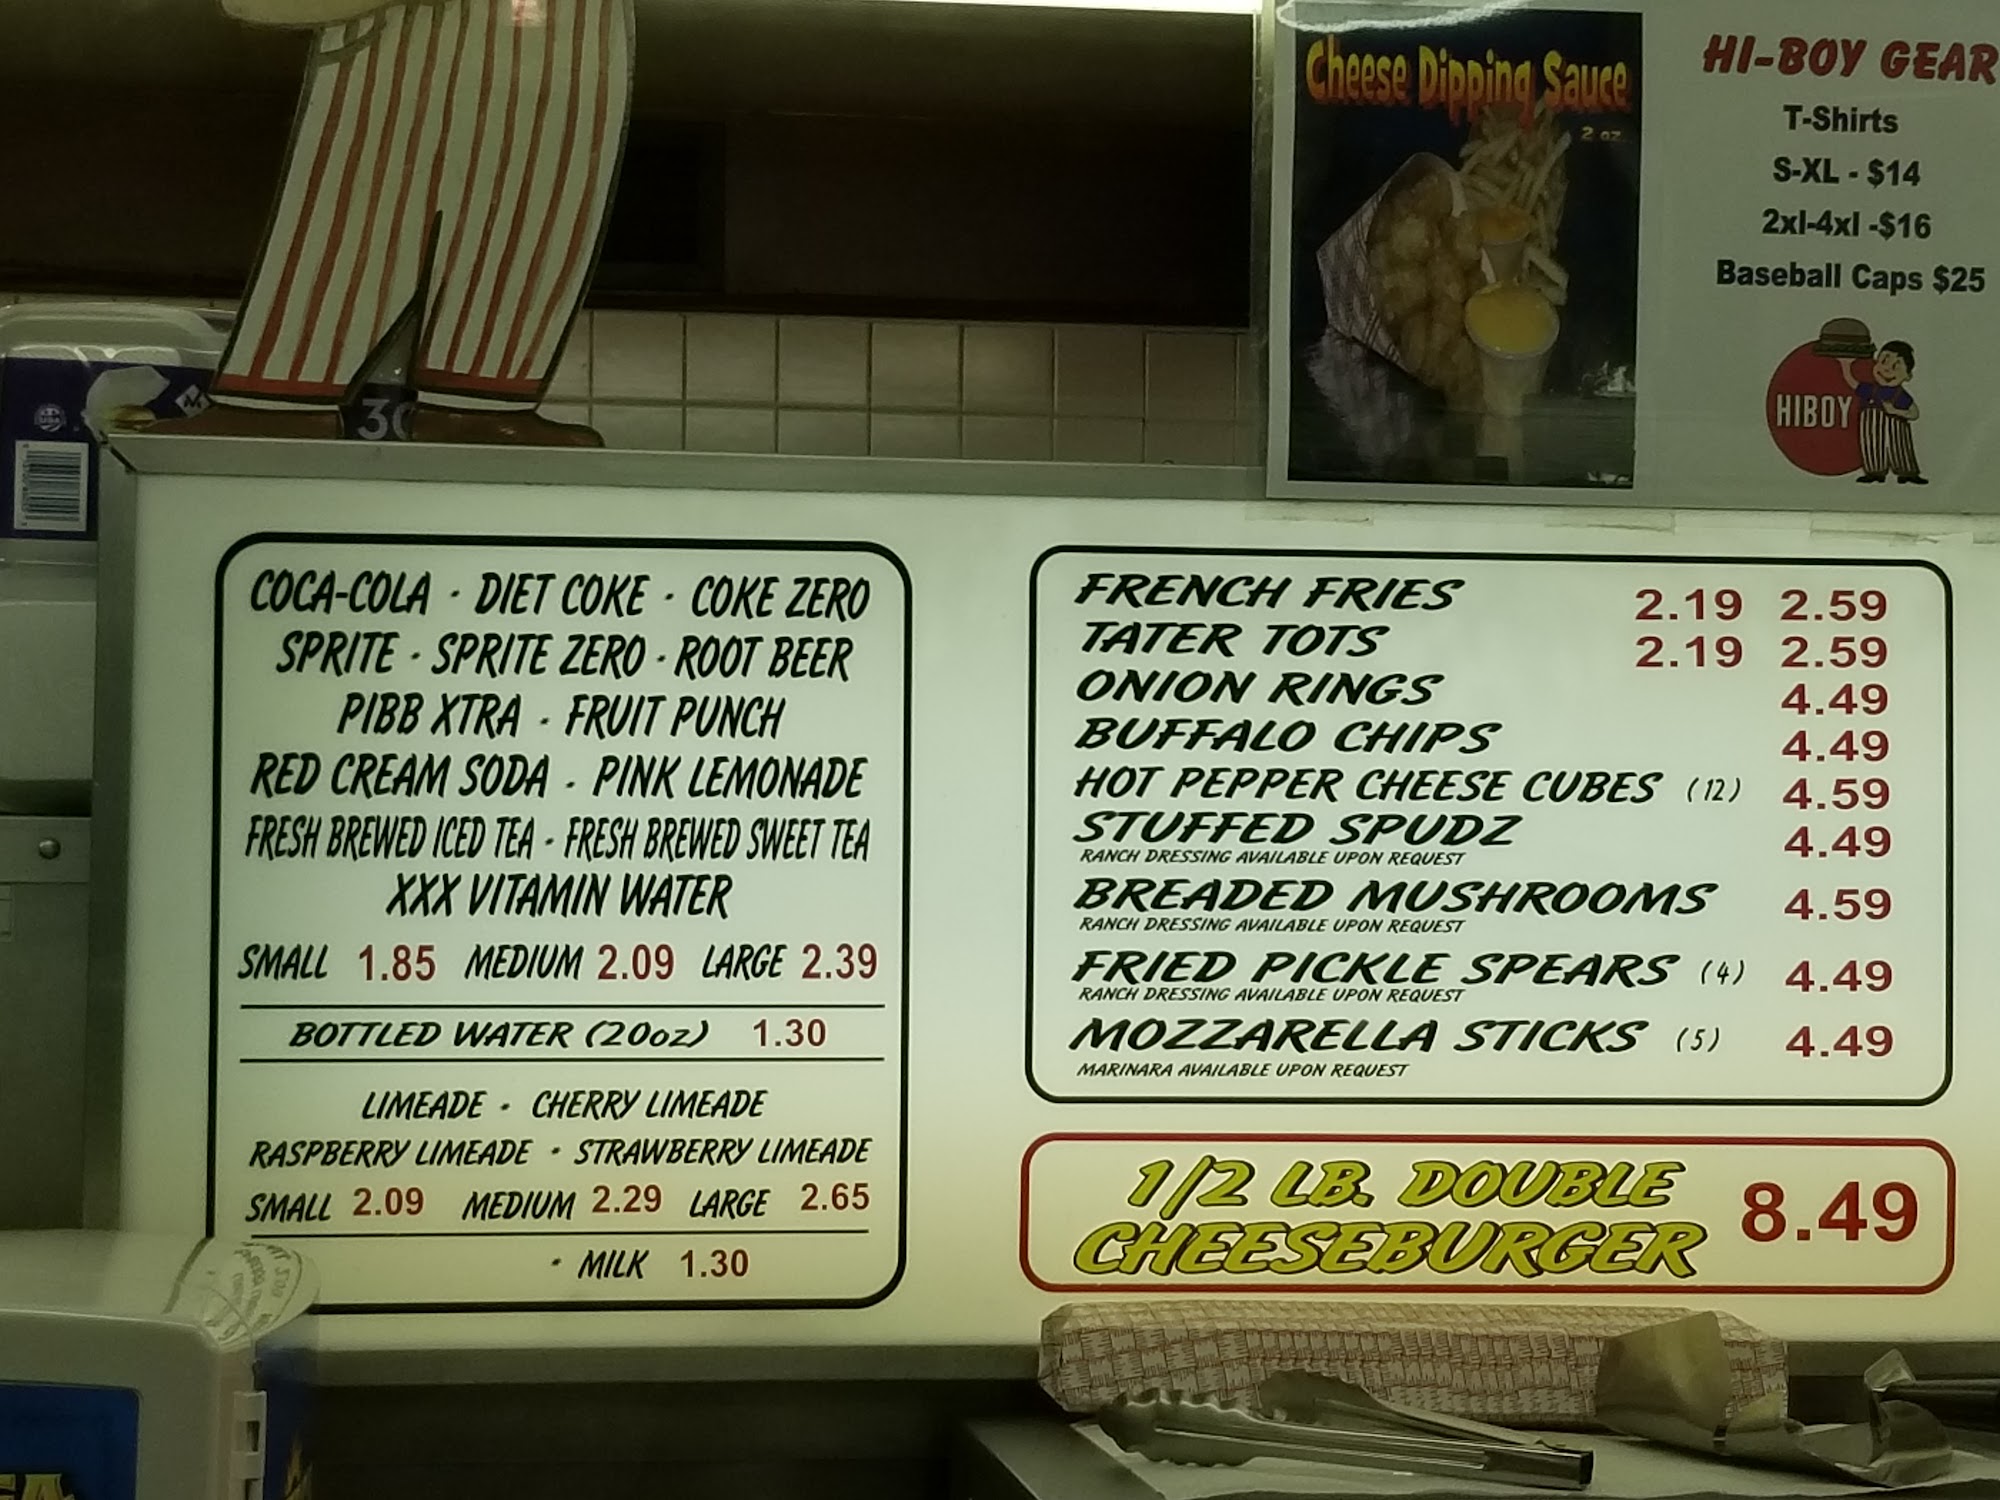 Cheese Dipping Sauce
2 oz.
HI-BOY GEAR
T-Shirts
S-XL - $14
2xl-4xl -$16
Baseball Caps $25
HIBOY
30
COCA-COLA · DIET COKE · COKE ZERO
SPRITE · SPRITE ZERO · ROOT BEER
PIBB XTRA · FRUIT PUNCH
RED CREAM SODA · PINK LEMONADE
FRESH BREWED ICED TEA · FRESH BREWED SWEET TEA
XXX VITAMIN WATER
SMALL 1.85 MEDIUM 2.09 LARGE 2.39
BOTTLED WATER (20oz) 1.30
LIMEADE · CHERRY LIMEADE
RASPBERRY LIMEADE · STRAWBERRY LIMEADE
SMALL 2.09 MEDIUM 2.29 LARGE 2.65
· MILK 1.30
FRENCH FRIES 2.19 2.59
TATER TOTS 2.19 2.59
ONION RINGS 4.49
BUFFALO CHIPS 4.49
HOT PEPPER CHEESE CUBES (12) 4.59
STUFFED SPUDZ 4.49
RANCH DRESSING AVAILABLE UPON REQUEST
BREADED MUSHROOMS 4.59
RANCH DRESSING AVAILABLE UPON REQUEST
FRIED PICKLE SPEARS (4) 4.49
RANCH DRESSING AVAILABLE UPON REQUEST
MOZZARELLA STICKS (5) 4.49
MARINARA AVAILABLE UPON REQUEST
1/2 LB. DOUBLE
CHEESEBURGER 8.49